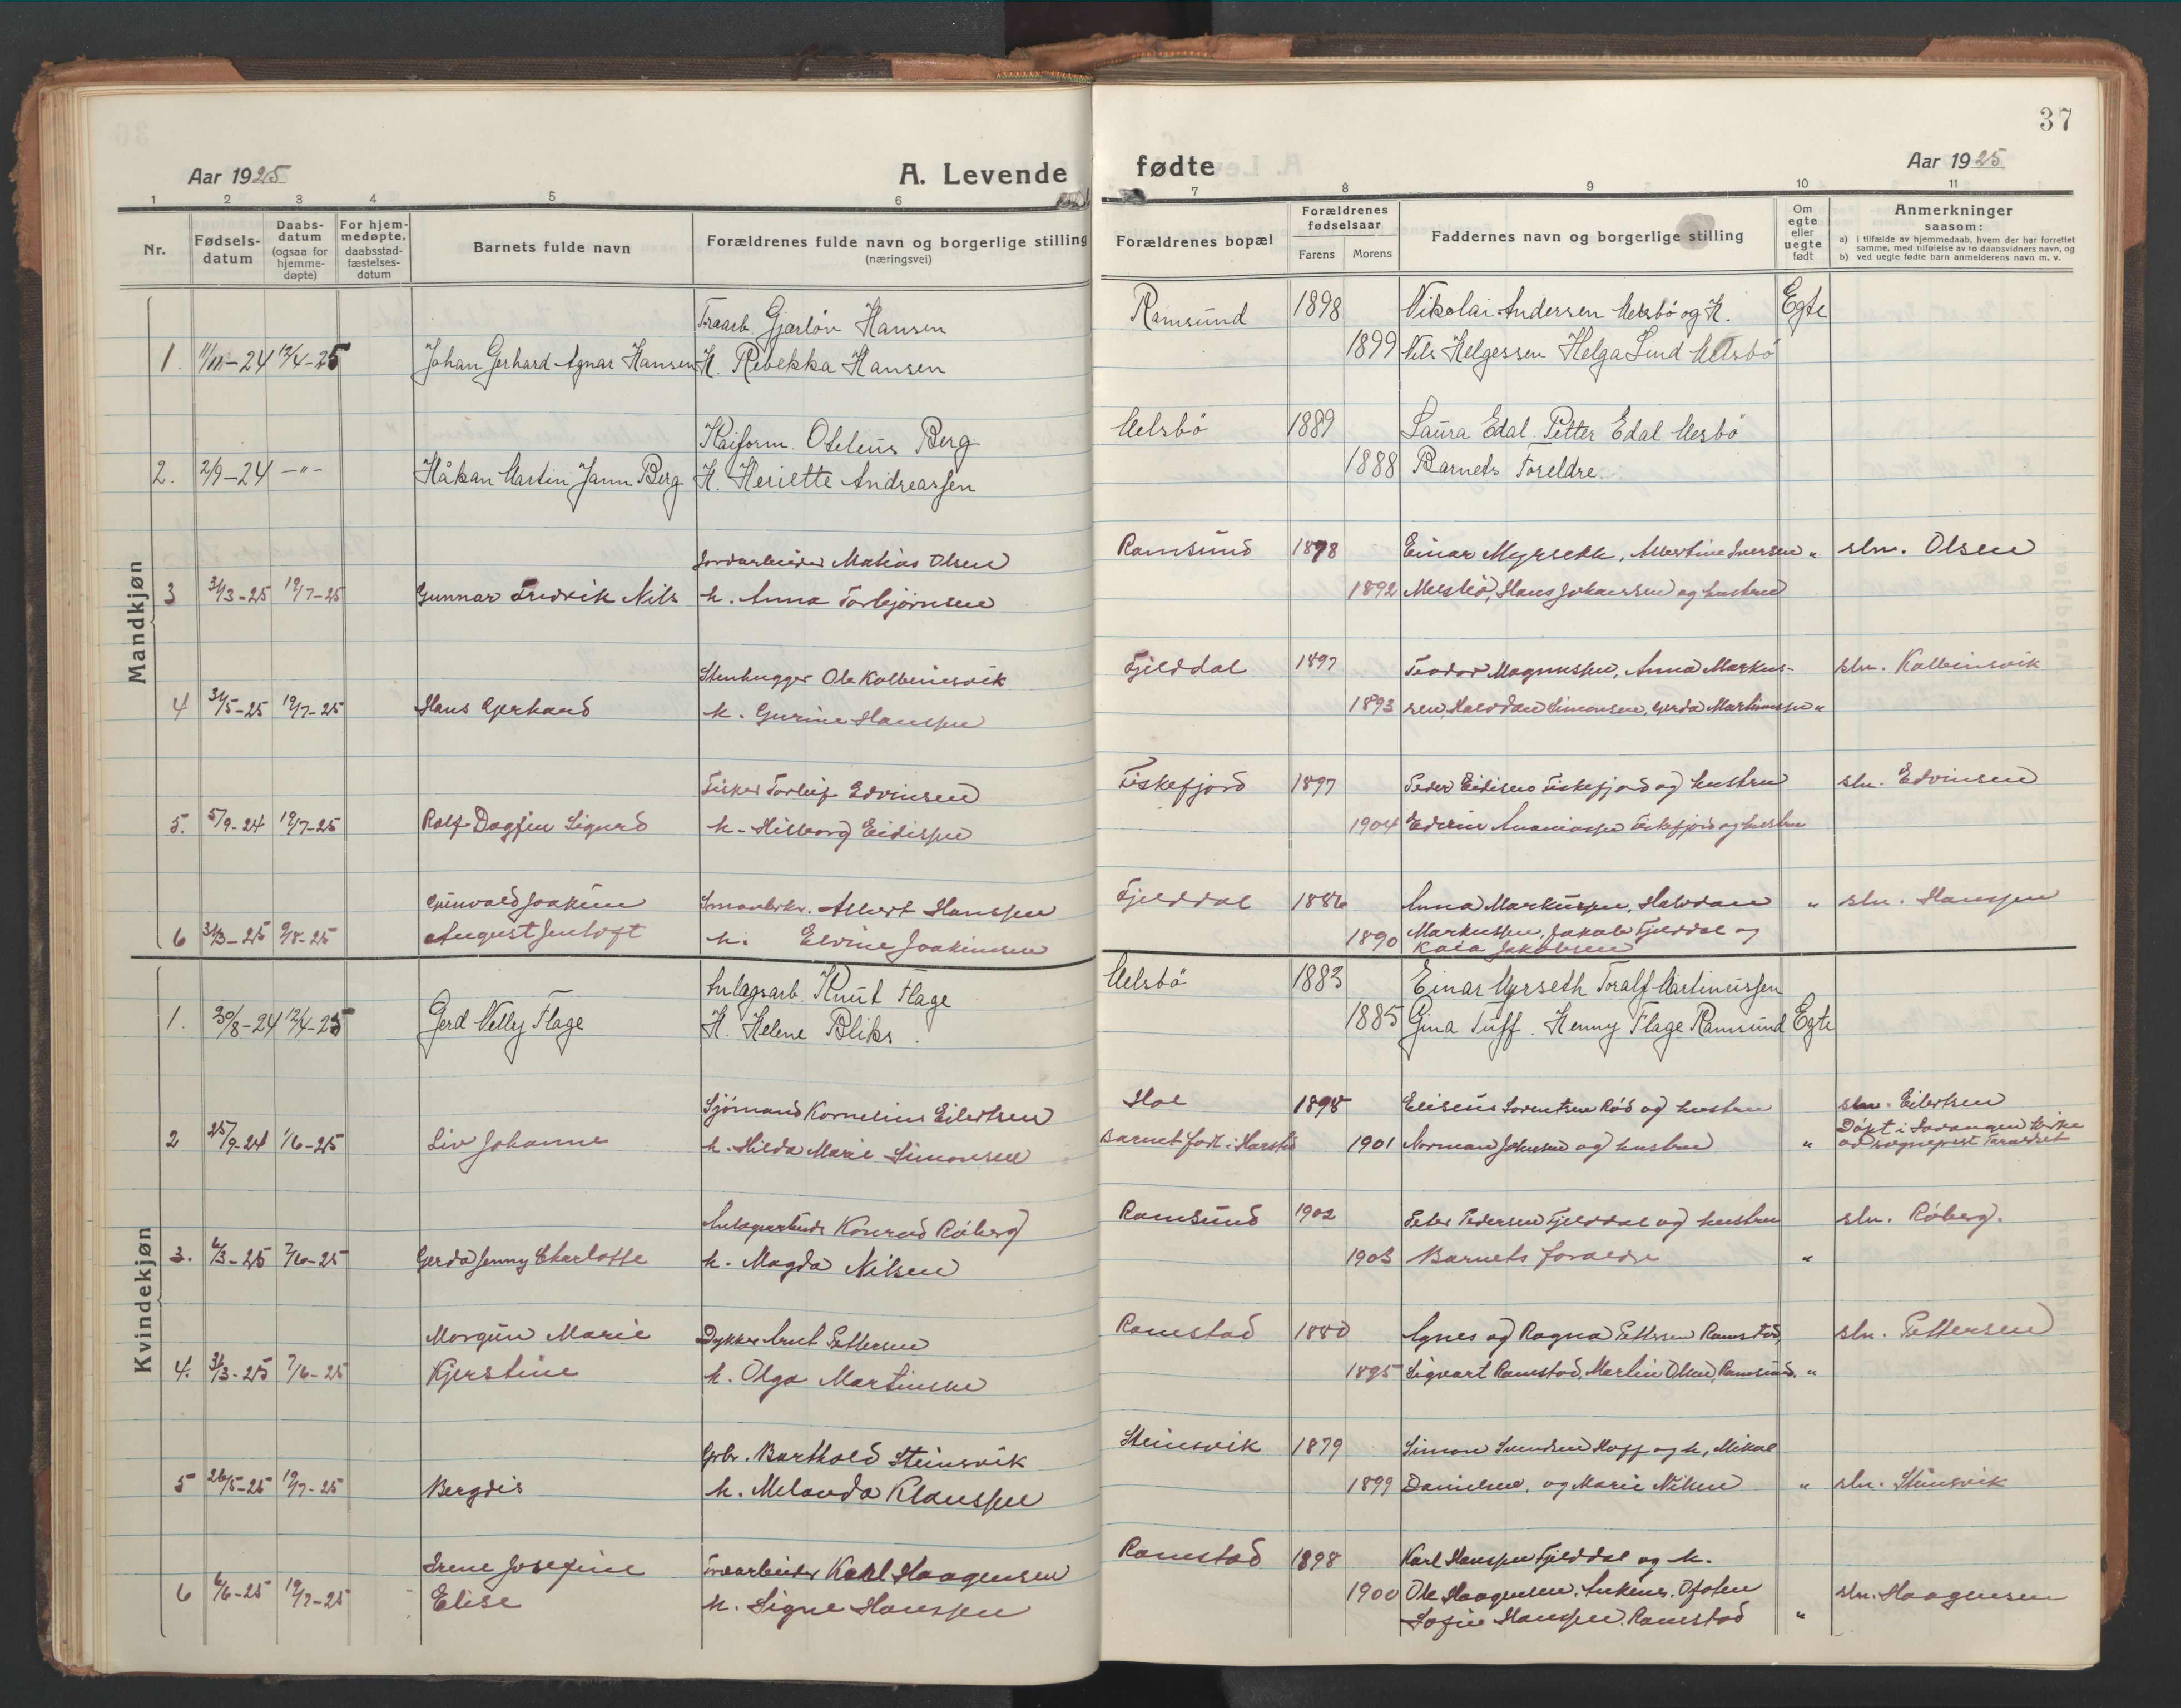 37
Aar 1925
A. Levende fødte
Aar 1925
1 2 3 4 5 6 7 8 9 10 11
Nr.
Fødsels-
datum
Daabs-
datum
(ogsaa for
hjemme-
døpte)
For hjem-
medøpte,
daabsstad-
fæstelses-
datum
Barnets fulde navn
Forældrenes fulde navn og borgerlige stilling
(næringsvei)
Forældrenes bopæl
Forældrenes
fødselsaar
Farens Morens
Faddernes navn og borgerlige stilling
Om
egte
eller
uegte
født
Anmerkninger
saasom:
a) i tilfælde av hjemmedaab, hvem der har forrettet
samme, med tilføielse av to daabsvidners navn, og
b) ved uegte fødte barn anmelderens navn m. v.
Mandkjøn
Gjærløv Hansen Ramsund 1898 Nikolai Andersen og H. Egte
1. 11/11-24 12/4-25 Johan Gerhard Agnar Hansen H. Rebekka Hansen 1899 Nils Helgessen Helga Lind
Berg 1889 Laura Edal. Petter Edal
2. 2/9-24 -"- Håkan Martin Berg H. Andreassen 1888 Barnets Foreldre.
Matias Olsen Ramsund 1898 Einar Albertine Iversen " sln. Olsen
3 31/3-25 19/7-25 Gunnar Fredrik Nils h. Anna Torbjørnsen 1892 Hans Johanssen og hustru
Stenhugger Ole Kolbeinsvik Fjelddal 1897 Teodor Magnussen, Anna Markus- sln. Kolbeinsvik
4 31/5-25 19/7-25 Hans Gerhard h. Gurine Hanssen 1893 sen, Halvdan Simonsen, Gerda Martinussen "
Fisker Torleif Edvinsen Fiskefjord 1897 Peder Eidisen Fiskefjord og hustru sln. Edvinsen
5. 5/9-24 19/7-25 Rolf Dagfin Sigurd h. Hilborg Eidissen 1904 Edvin Ananiassen Fiskefjord og hustru
Joakim Albert Hanssen Fjelddal 1886 Anna Markussen, Halvdan " sln. Hanssen
6 31/3-25 9/8-25 August Jentoft h. Elvine Joakimsen 1890 Markussen, Jakob Fjelddal og
Kaia Jakobsen
Kvindekjøn
Anlægsarb. Knut Flage 1883 Einar Myrseth Toralf Martinussen
1. 30/8-24 12/4-25 Gerd Nelly Flage H. Helene Bliks. 1885 Gina Tuff. Henny Flage Ramsund Egte
Sjömand Kornelius Eilertsen Hol 1898 Eliseus Sorentsen Rød og hustru sln. Eilertsen
2 25/9-24 1/6-25 Liv Johanne h. Hilda Marie Simonsen Barnet født i Harstad 1901 Norman Johnsen og hustru " Döpt i Sovangen kirke
av sogneprest
Anlægsarbeider Konrad Röberg Ramsund 1902 Peder Pedersen Fjelddal og hustru sln. Röberg.
3. 6/3-25 7/6-25 Gerda Jenny Charlotte h. Magda Nilsen 1903 Barnets foraeldre "
Morgun Marie Dykker Arnt Pettersen Ramstad 1880 Agnes og Ragna Pettersen Ramstad, sln. Pettersen
4. 31/3-25 7/6-25 Kjerstine h. Olga Martinsen 1895 Sigvart Ramstad, Martin Olsen, Ramsund. "
Gbr. Barthold Steinsvik Steinsvik 1879 Simon Svendsen Hoff og h, Mikal
5 26/5-25 19/7-25 Bergdis h. Melanda Klaussen 1899 Danielsen, og Marie Nilsen " sln. Steinsvik
Irene Josefine Karl Haagensen Ramstad 1898 Karl Hanssen Fjelddal og h.
6 6/6-25 19/7-25 Elise h. Signe Hanssen 1900 Ole Haagensen, Ankenes, Ofoten sln. Haagensen
Sofie Hanssen, Ramstad "